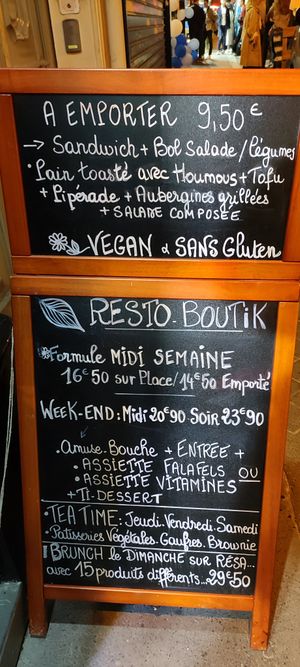 A EMPORTER 9,50€
→ Sandwich + Bol Salade/Légumes
• Pain toasté avec Houmous + Tofu
+ Pipérade + Aubergines grillées
+ SALADE COMPOSÉE
VEGAN & SANS Gluten
RESTO-BOUTiK
Formule MiDi SEMAINE
16€50 sur Place/14€50 Emporté
WEEK-END: Midi 20€90 Soir 23€90
Amuse-Bouche + ENTRÉE +
• ASSIETTE FALAFELS OU
• ASSIETTE VITAMINES
+ TI-DESSERT
• TEA TIME: Jeudi. Vendredi. Samedi
Patisseries Végétales. Gaufres. Brownie
BRUNCH le DIMANCHE SUR RÉSA...
avec 15 produits différents... 29€50